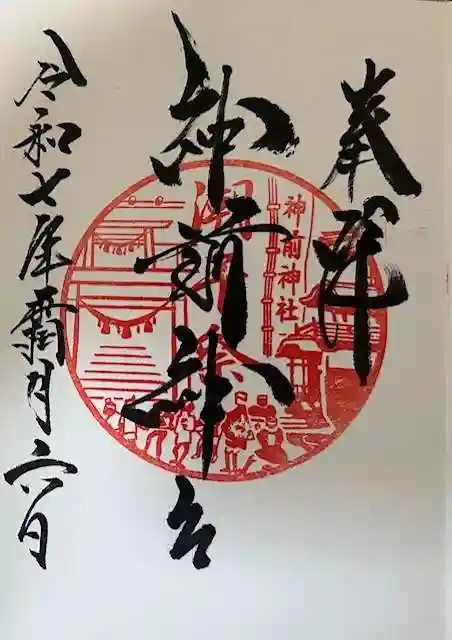 奉拝
神前神社
潮干祭
神前神社
令和七年霜月六日